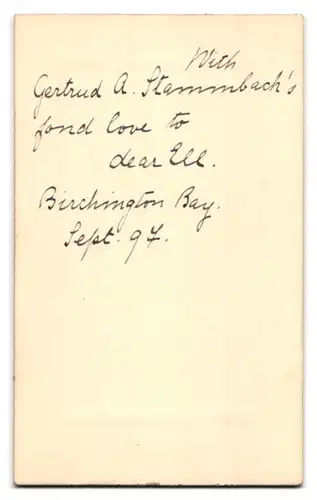 With
Gertrud A. Stammbach's
fond love to
dear Ell.
Birchington Bay.
Sept. 97.